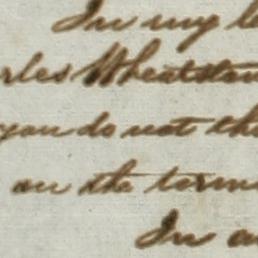 In my le
rles Wheatston
you do not the
on the terms
In a